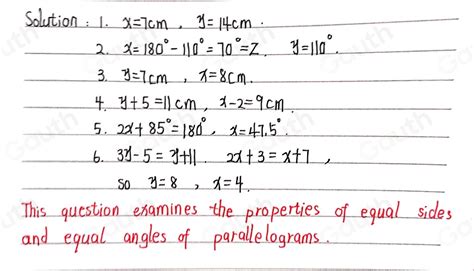 Solution: 1. x=7cm, y=14cm.
2. x=180°-110°=70°=z. y=110°.
3. y=7cm, x=8cm.
4. y+5=11cm, x-2=9cm.
5. 2x+85°=180°, x=47.5°.
6. 3y-5=y+11. 2x+3=x+7,
so y=8, x=4.
This question examines the properties of equal sides
and equal angles of parallelograms.